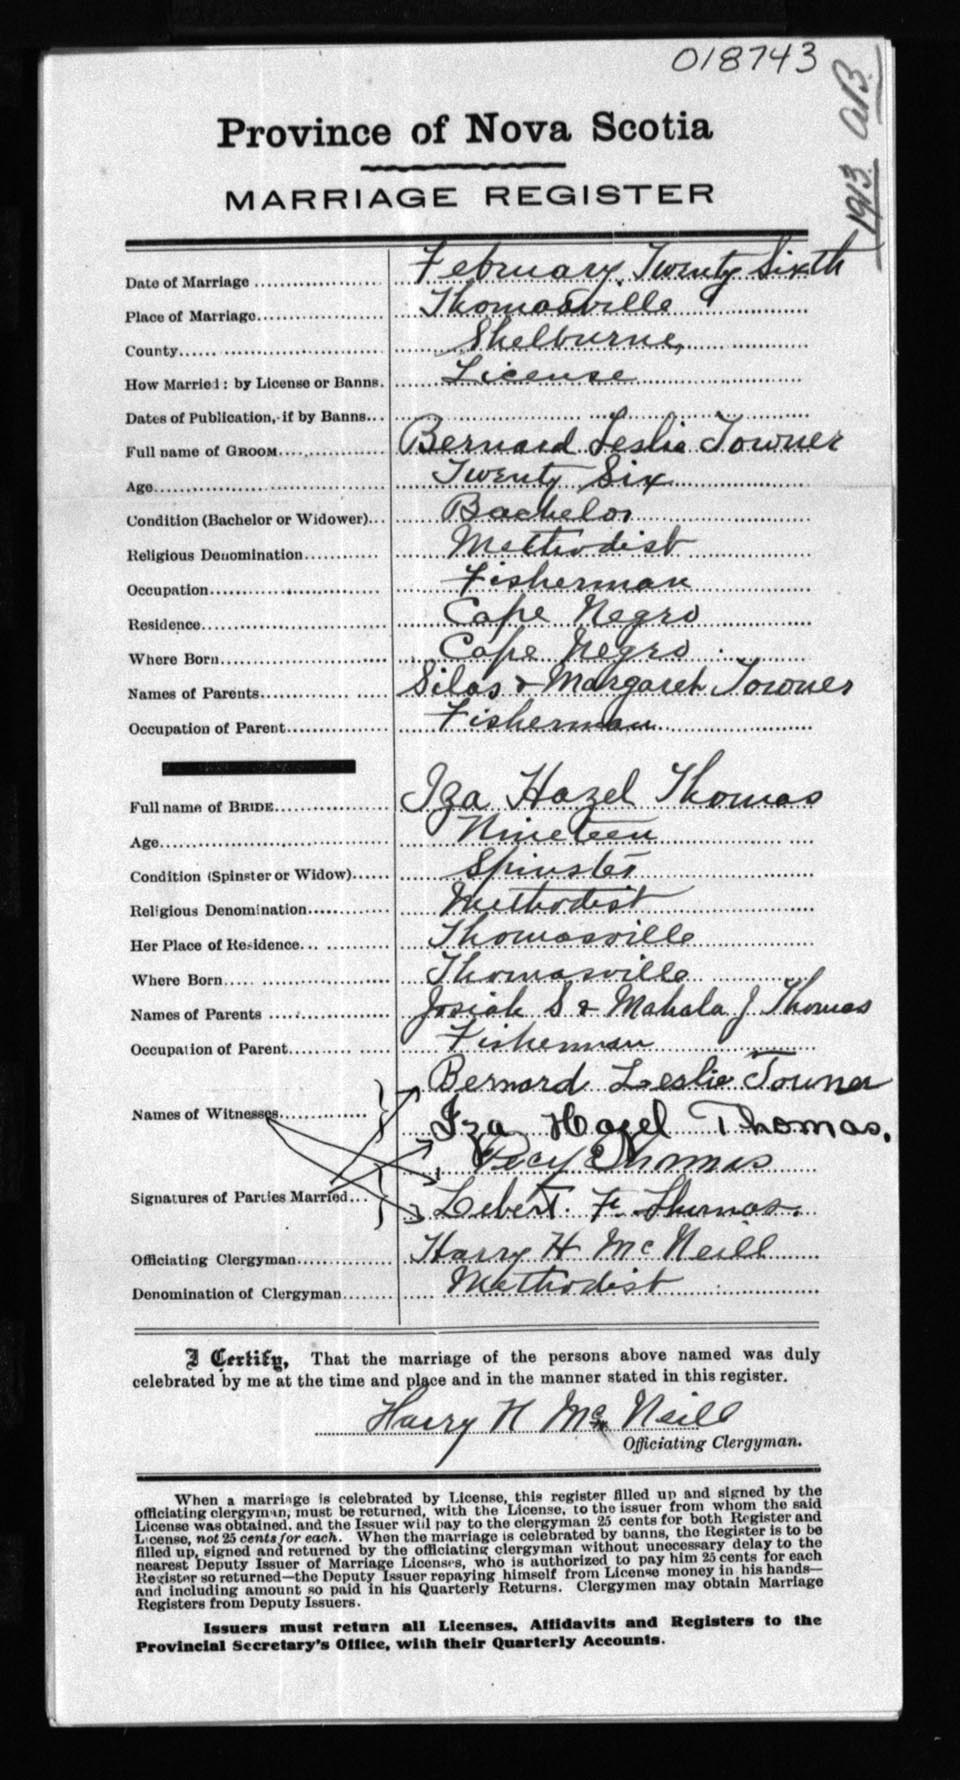 018743
1913 AB.
Province of Nova Scotia
MARRIAGE REGISTER
Date of Marriage February Twenty Sixth
Place of Marriage Thomasville
County Shelburne
How Married: by License or Banns. License
Dates of Publication, if by Banns
Full name of GROOM Bernard Leslie Towner
Age Twenty Six
Condition (Bachelor or Widower) Bachelor
Religious Denomination Methodist
Occupation Fisherman
Residence Cape Negro
Where Born Cape Negro
Names of Parents Silas & Margaret Towner
Occupation of Parent Fisherman
Full name of BRIDE Iza Hazel Thomas
Age Nineteen
Condition (Spinster or Widow) Spinster
Religious Denomination Methodist
Her Place of Residence Thomasville
Where Born Thomasville
Names of Parents Josiah S & Mahala J Thomas
Occupation of Parent Fisherman
Bernard Leslie Towner
Names of Witnesses Iza Hazel Thomas.
Thomas
Signatures of Parties Married Lebert. F. Thomas.
Officiating Clergyman Harry H McNeill
Denomination of Clergyman Methodist
I Certify, That the marriage of the persons above named was duly
celebrated by me at the time and place and in the manner stated in this register.
Harry H McNeill
Officiating Clergyman.
When a marriage is celebrated by License, this register filled up and signed by the
officiating clergyman, must be returned, with the License, to the issuer from whom the said
License was obtained, and the Issuer will pay to the clergyman 25 cents for both Register and
License, not 25 cents for each. When the marriage is celebrated by banns, the Register is to be
filled up, signed and returned by the officiating clergyman without unnecessary delay to the
nearest Deputy Issuer of Marriage Licenses, who is authorized to pay him 25 cents for each
Register so returned—the Deputy Issuer repaying himself from License money in his hands—
and including amount so paid in his Quarterly Returns. Clergymen may obtain Marriage
Registers from Deputy Issuers.
Issuers must return all Licenses, Affidavits and Registers to the
Provincial Secretary's Office, with their Quarterly Accounts.